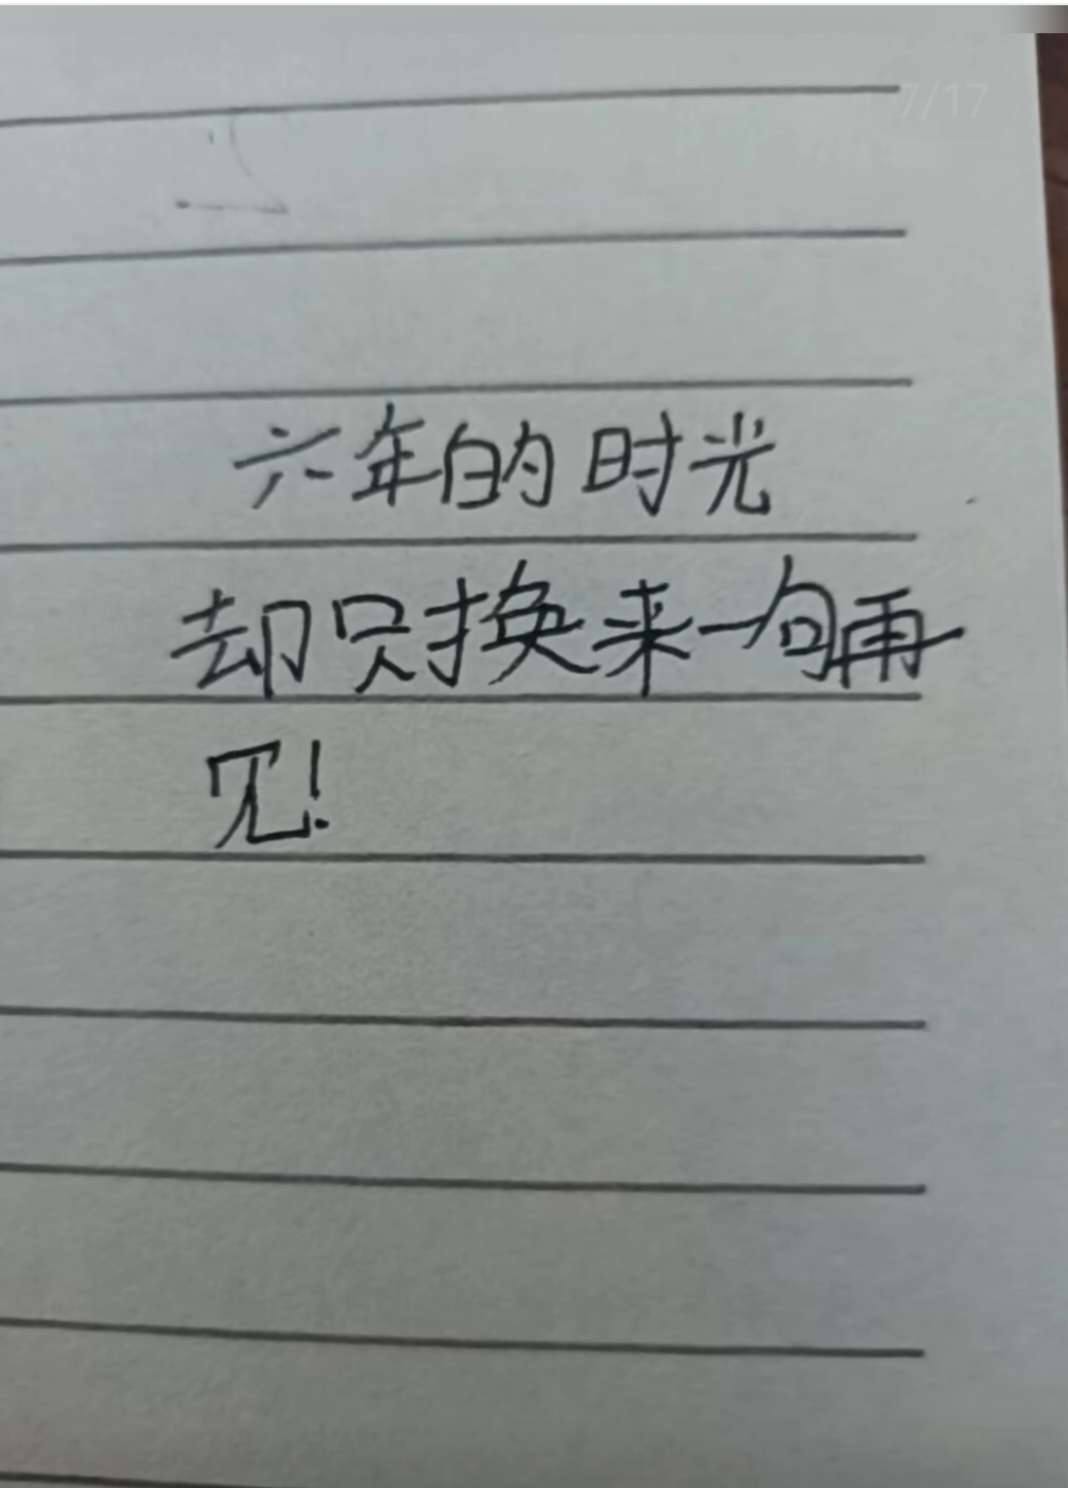 7/17
六年的时光
却只换来一句再
见!